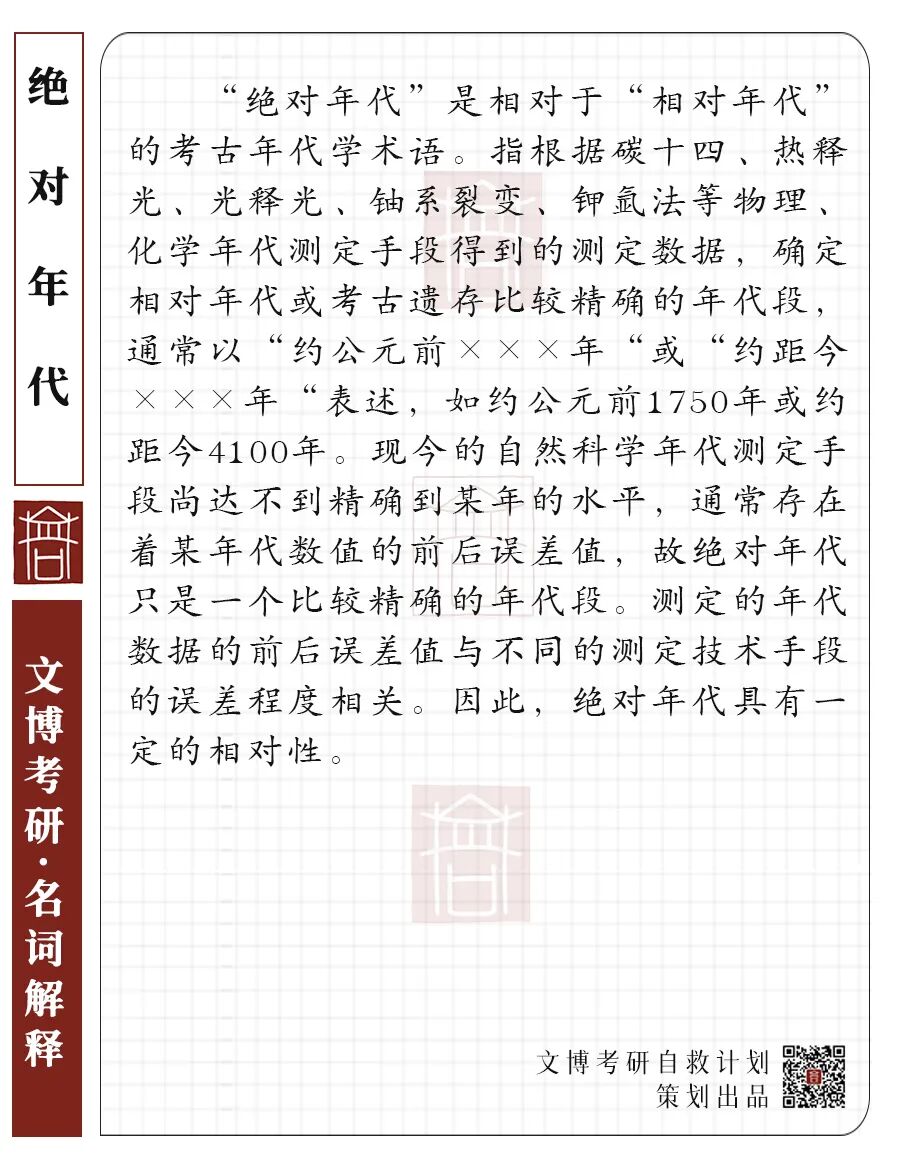 绝对年代
文博考研·名词解释
“绝对年代”是相对于“相对年代”
的考古年代学术语。指根据碳十四、热释
光、光释光、铀系裂变、钾氩法等物理、
化学年代测定手段得到的测定数据，确定
相对年代或考古遗存比较精确的年代段，
通常以“约公元前×××年“或“约距今
×××年“表述，如约公元前1750年或约
距今4100年。现今的自然科学年代测定手
段尚达不到精确到某年的水平，通常存在
着某年代数值的前后误差值，故绝对年代
只是一个比较精确的年代段。测定的年代
数据的前后误差值与不同的测定技术手段
的误差程度相关。因此，绝对年代具有一
定的相对性。
文博考研自救计划
策划出品